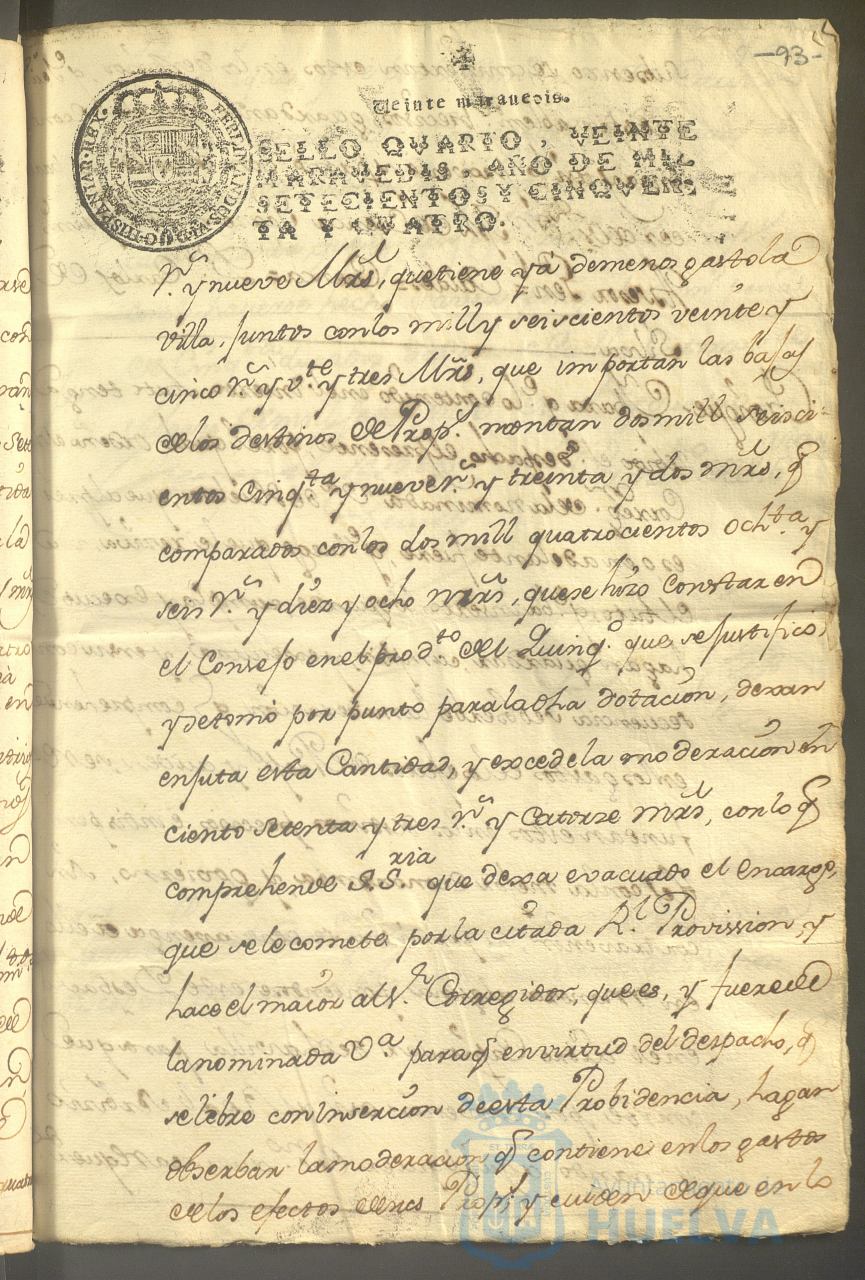 -93-
Veinte maravedis.
SELLO QUARTO, VEINTE
MARAVEDIS, AÑO DE MIL
SETECIENTOS Y CINQVEN-
TA Y QUATRO.
FERDINANDUS·VI·D·G· HISPANIAR·REX·
r.ˢ y nueve Mrs̃, que tiene ya demenos gasto la
villa, juntos con los mill y seiscientos veinte y
cinco r.ˢ y v.ᵗᵉ y tres Mrs̃, que importan las bajas
de los destinos de Prop.ˢ montan dos mill seisci-
entos Cinq.ᵗᵃ y nueve r.ˢ y treinta y dos mrs̃, q̃
comparados con los dos mill quatrocientos och.ᵗᵃ y
seis r.ˢ y diez y ocho mrs̃, que se hizo constar en
el Consejo en el prod.ᵗᵒ del Quinq.º que se justificò,
y se tomò por punto para la dha dotacion, dexan
enjuta esta Cantidad, y excede la moderacion en
ciento setenta y tres r.ˢ y Catorze mrs̃, con lo q̃
comprehende S.S.ʳⁱᵃ que dexa evacuado el encargo,
que se le comete por la citada R.ˡ Provission, y
hace el maior al S.ʳ Corregidor, que es, y fuere de
la nominada V.ᵃ para q̃ en virtud del despacho, q̃
se libre con inserción de esta Probidencia, hagan
obserbar la moderacion q̃ contiene en los gastos
de los efectos de sus Prop.ˢ y cuiden de que en lo
Ayuntamiento
HUELVA